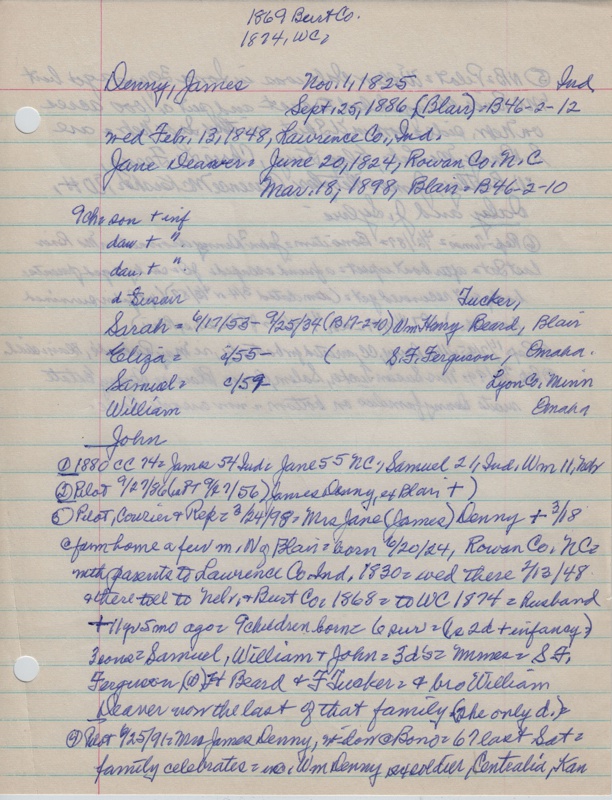 1869 Burt Co.
1874, WC,
Denny, James Nov. 1, 1825 Ind
Sept. 25, 1886, (Blair) = B46-2-12
wed Feb. 13, 1848, Lawrence Co., Ind.
Jane Deaver = June 20, 1824, Rowan Co, N.C
Mar. 18, 1898, Blair = B46-2-10
9ch = son + inf
dau + "
dau. + "
d-Susan Tucker,
Sarah = 6/17/53 - 9/25/34 (B17-2-10) Wm Henry Beard, Blair
Eliza = c/55 - ( S.F. Ferguson, Omaha.
Samuel = c/59 Lyon Co, Minn
William Omaha
John
① 1880 CC 74 = James 54 Ind = Jane 55 NC, Samuel 21, Ind, Wm 11, Nebr
② Pilot 9/27/86 James Denny, Blair +)
③ Pilot, Courier & Rep = 3/24/98 = Mrs Jane (James) Denny + 3/18
@ farm home a few m. N of Blair = born 6/20/24, Rowan Co. NC =
with parents to Lawrence Co. Ind, 1830 = wed there 2/13/48
& there to Nebr, & Burt Co = 1868 = to WC 1874 = Husband
+ 11 yr 5 mo ago = 9 children born = 6 sur = (1s 2d + infancy =)
3 sons = Samuel, William & John = 3 d's = Mmes = S.F.
Ferguson (O) H Beard & F Tucker = & bro William
Deaver now the last of that family (she only d.) =
④ Pilot 6/25/91 = Mrs James Denny, Bono = 67 last Sat =
family celebrates = Wm Denny soldier, Centralia, Kan